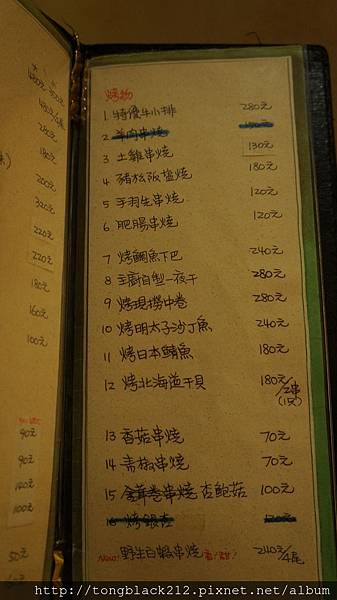 烤物
1 特優牛小排 280元
2 羊肉串燒
3 土雞串燒 130元
4 豬松阪鹽燒 180元
5 手羽先串燒 120元
6 肥腸串燒 120元
7 烤鯛魚下巴 240元
8 主廚自製一夜干 280元
9 烤現撈中卷 280元
10 烤明太子沙丁魚 240元
11 烤日本鯖魚 180元
12 烤北海道干貝 180元/2串
(1只)
13 香菇串燒 70元
14 青椒串燒 70元
15 串燒 杏鮑菇 100元
16 烤銀杏 120元
New! 野生白蝦串燒 240元/4尾
180元
200元
320元
220元
220元
180元
160元
100元
90元
90元
140元
100元
50元
http://tongblack212.pixnet.net/album